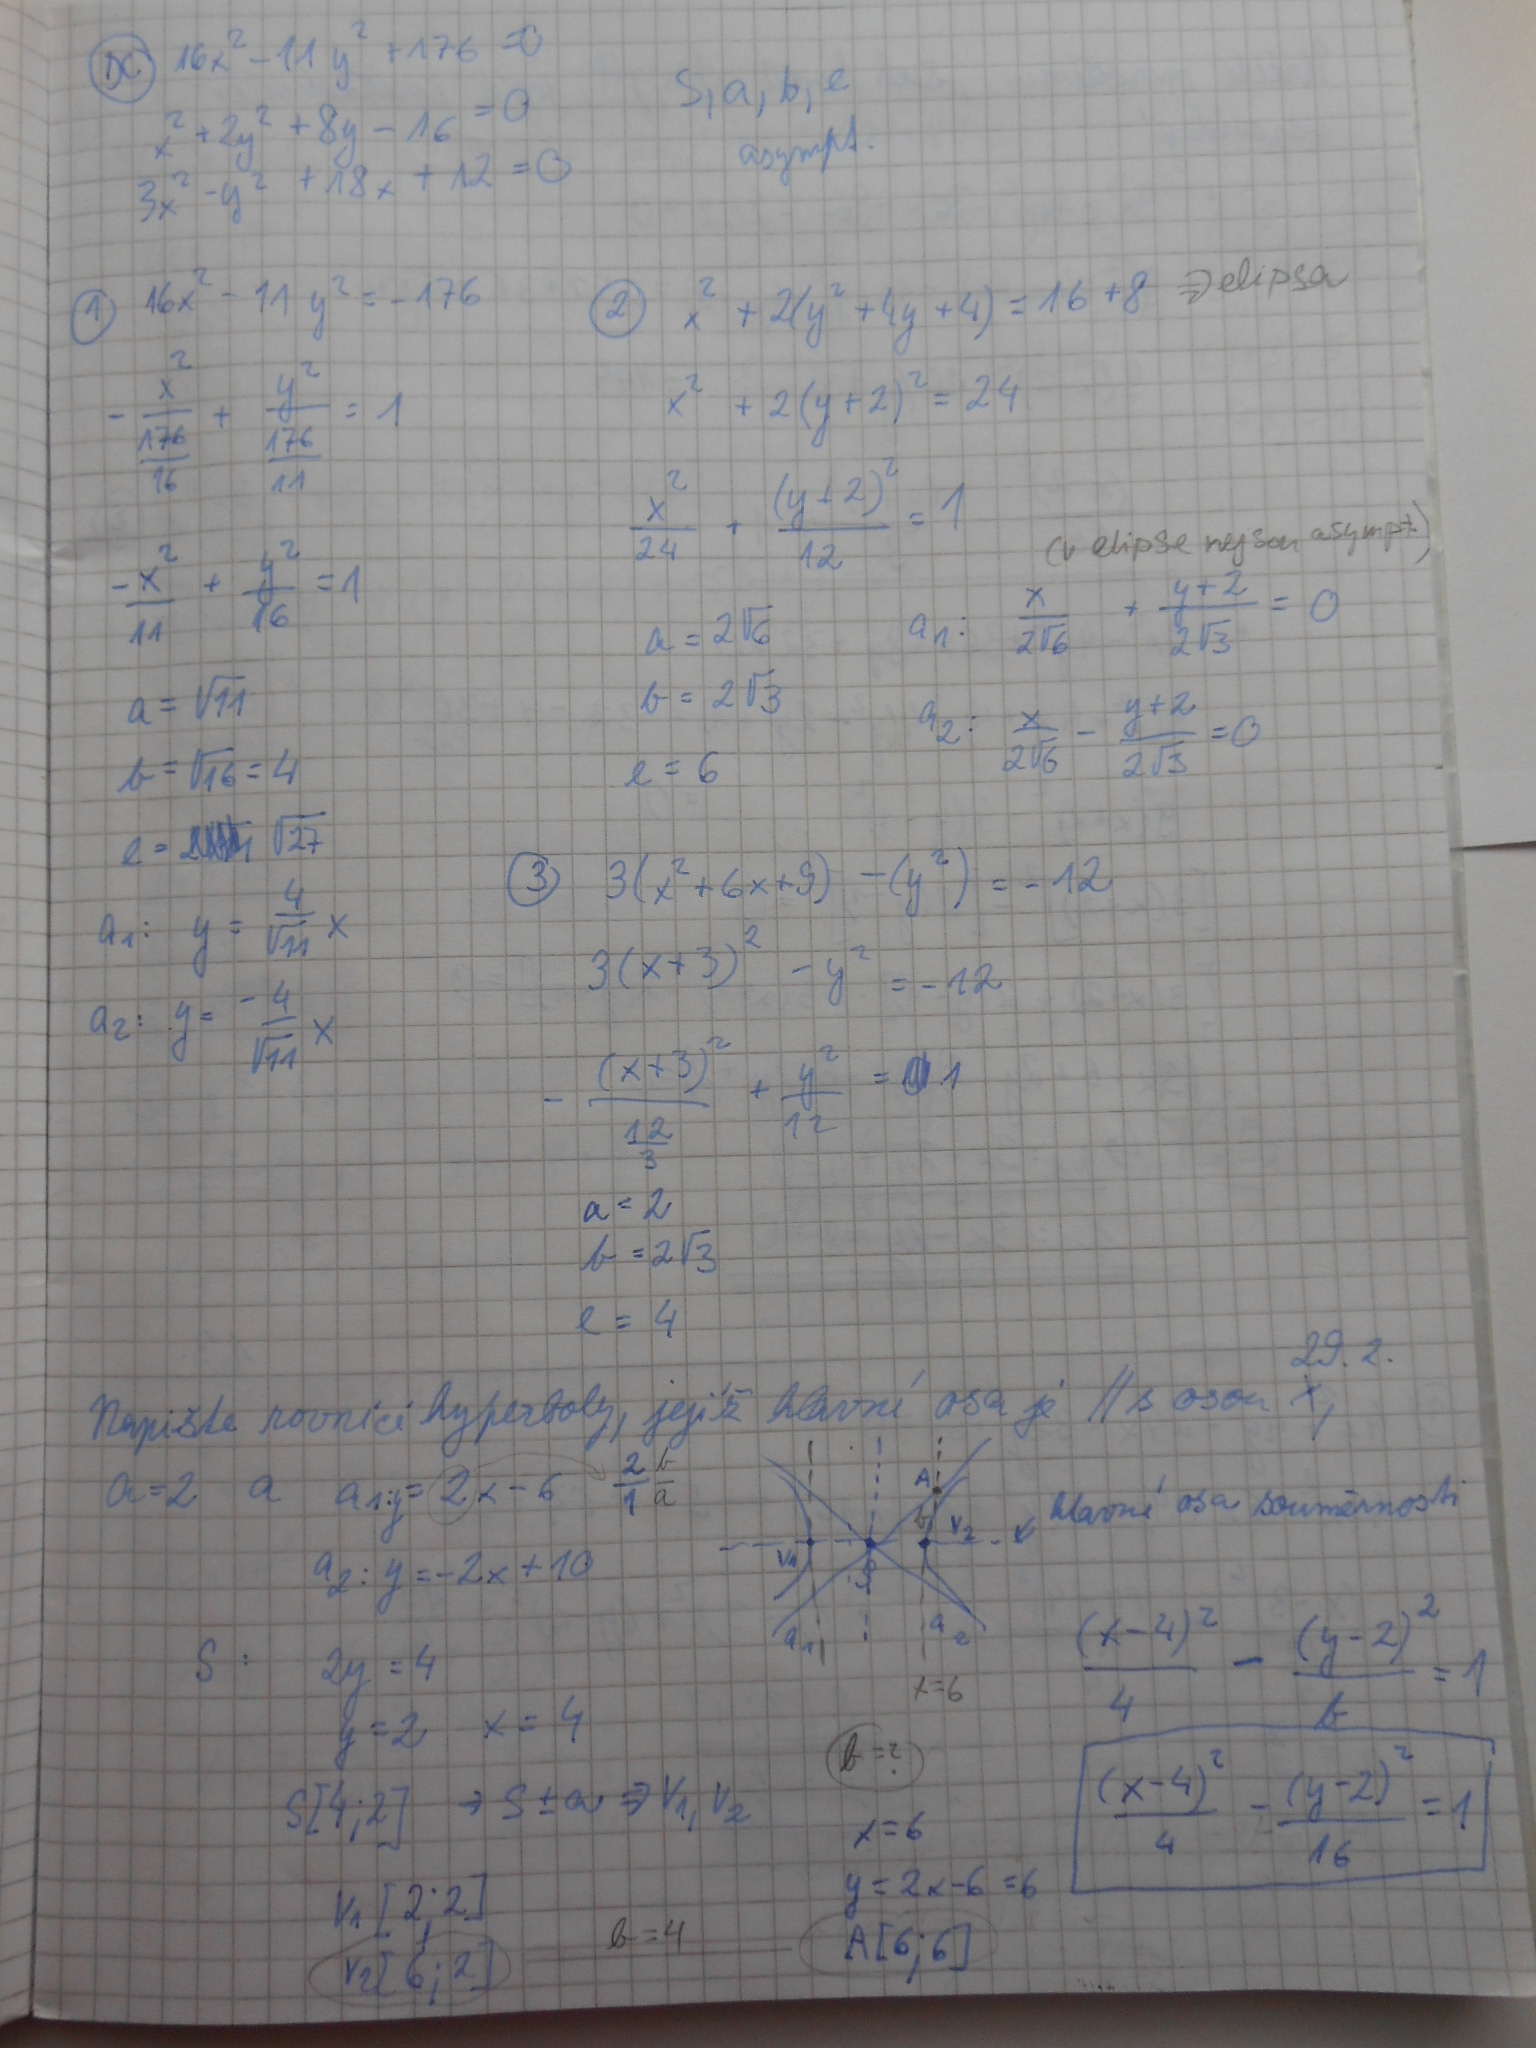 DC 16x² - 11y² + 176 = 0
x² + 2y² + 8y - 16 = 0
3x² - y² + 18x + 12 = 0
S, a, b, e
asympt.
① 16x² - 11y² = -176
- x²/(176/16) + y²/(176/11) = 1
-x²/11 + y²/16 = 1
a = √11
b = √16 = 4
e = √27
a₁: y = 4/√11 x
a₂: y = -4/√11 x
② x² + 2(y² + 4y + 4) = 16 + 8 ⇒ elipsa
x² + 2(y + 2)² = 24
x²/24 + (y+2)²/12 = 1
(v elipse nejsou asympt.)
a = 2√6
b = 2√3
e = 6
a₁: x/2√6 + y+2/2√3 = 0
a₂: x/2√6 - y+2/2√3 = 0
③ 3(x² + 6x + 9) - (y²) = -12
3(x+3)² - y² = -12
- (x+3)²/(12/3) + y²/12 = 1
a = 2
b = 2√3
e = 4
29. 2.
Napište rovnici hyperboly, jejíž hlavní osa je // s osou x,
a = 2 a a₁: y = 2x - 6 2/1 b/a
a₂: y = -2x + 10
A
b
V₁
S
V₂
a₁
a₂
x = 6
hlavní osa souměrnosti
S: 2y = 4
y = 2 x = 4
S[4;2] → S ± a ⇒ V₁, V₂
V₁[2;2]
V₂[6;2]
b = 4
b = ?
x = 6
y = 2x - 6 = 6
A[6;6]
(x-4)²/4 - (y-2)²/b = 1
(x-4)²/4 - (y-2)²/16 = 1